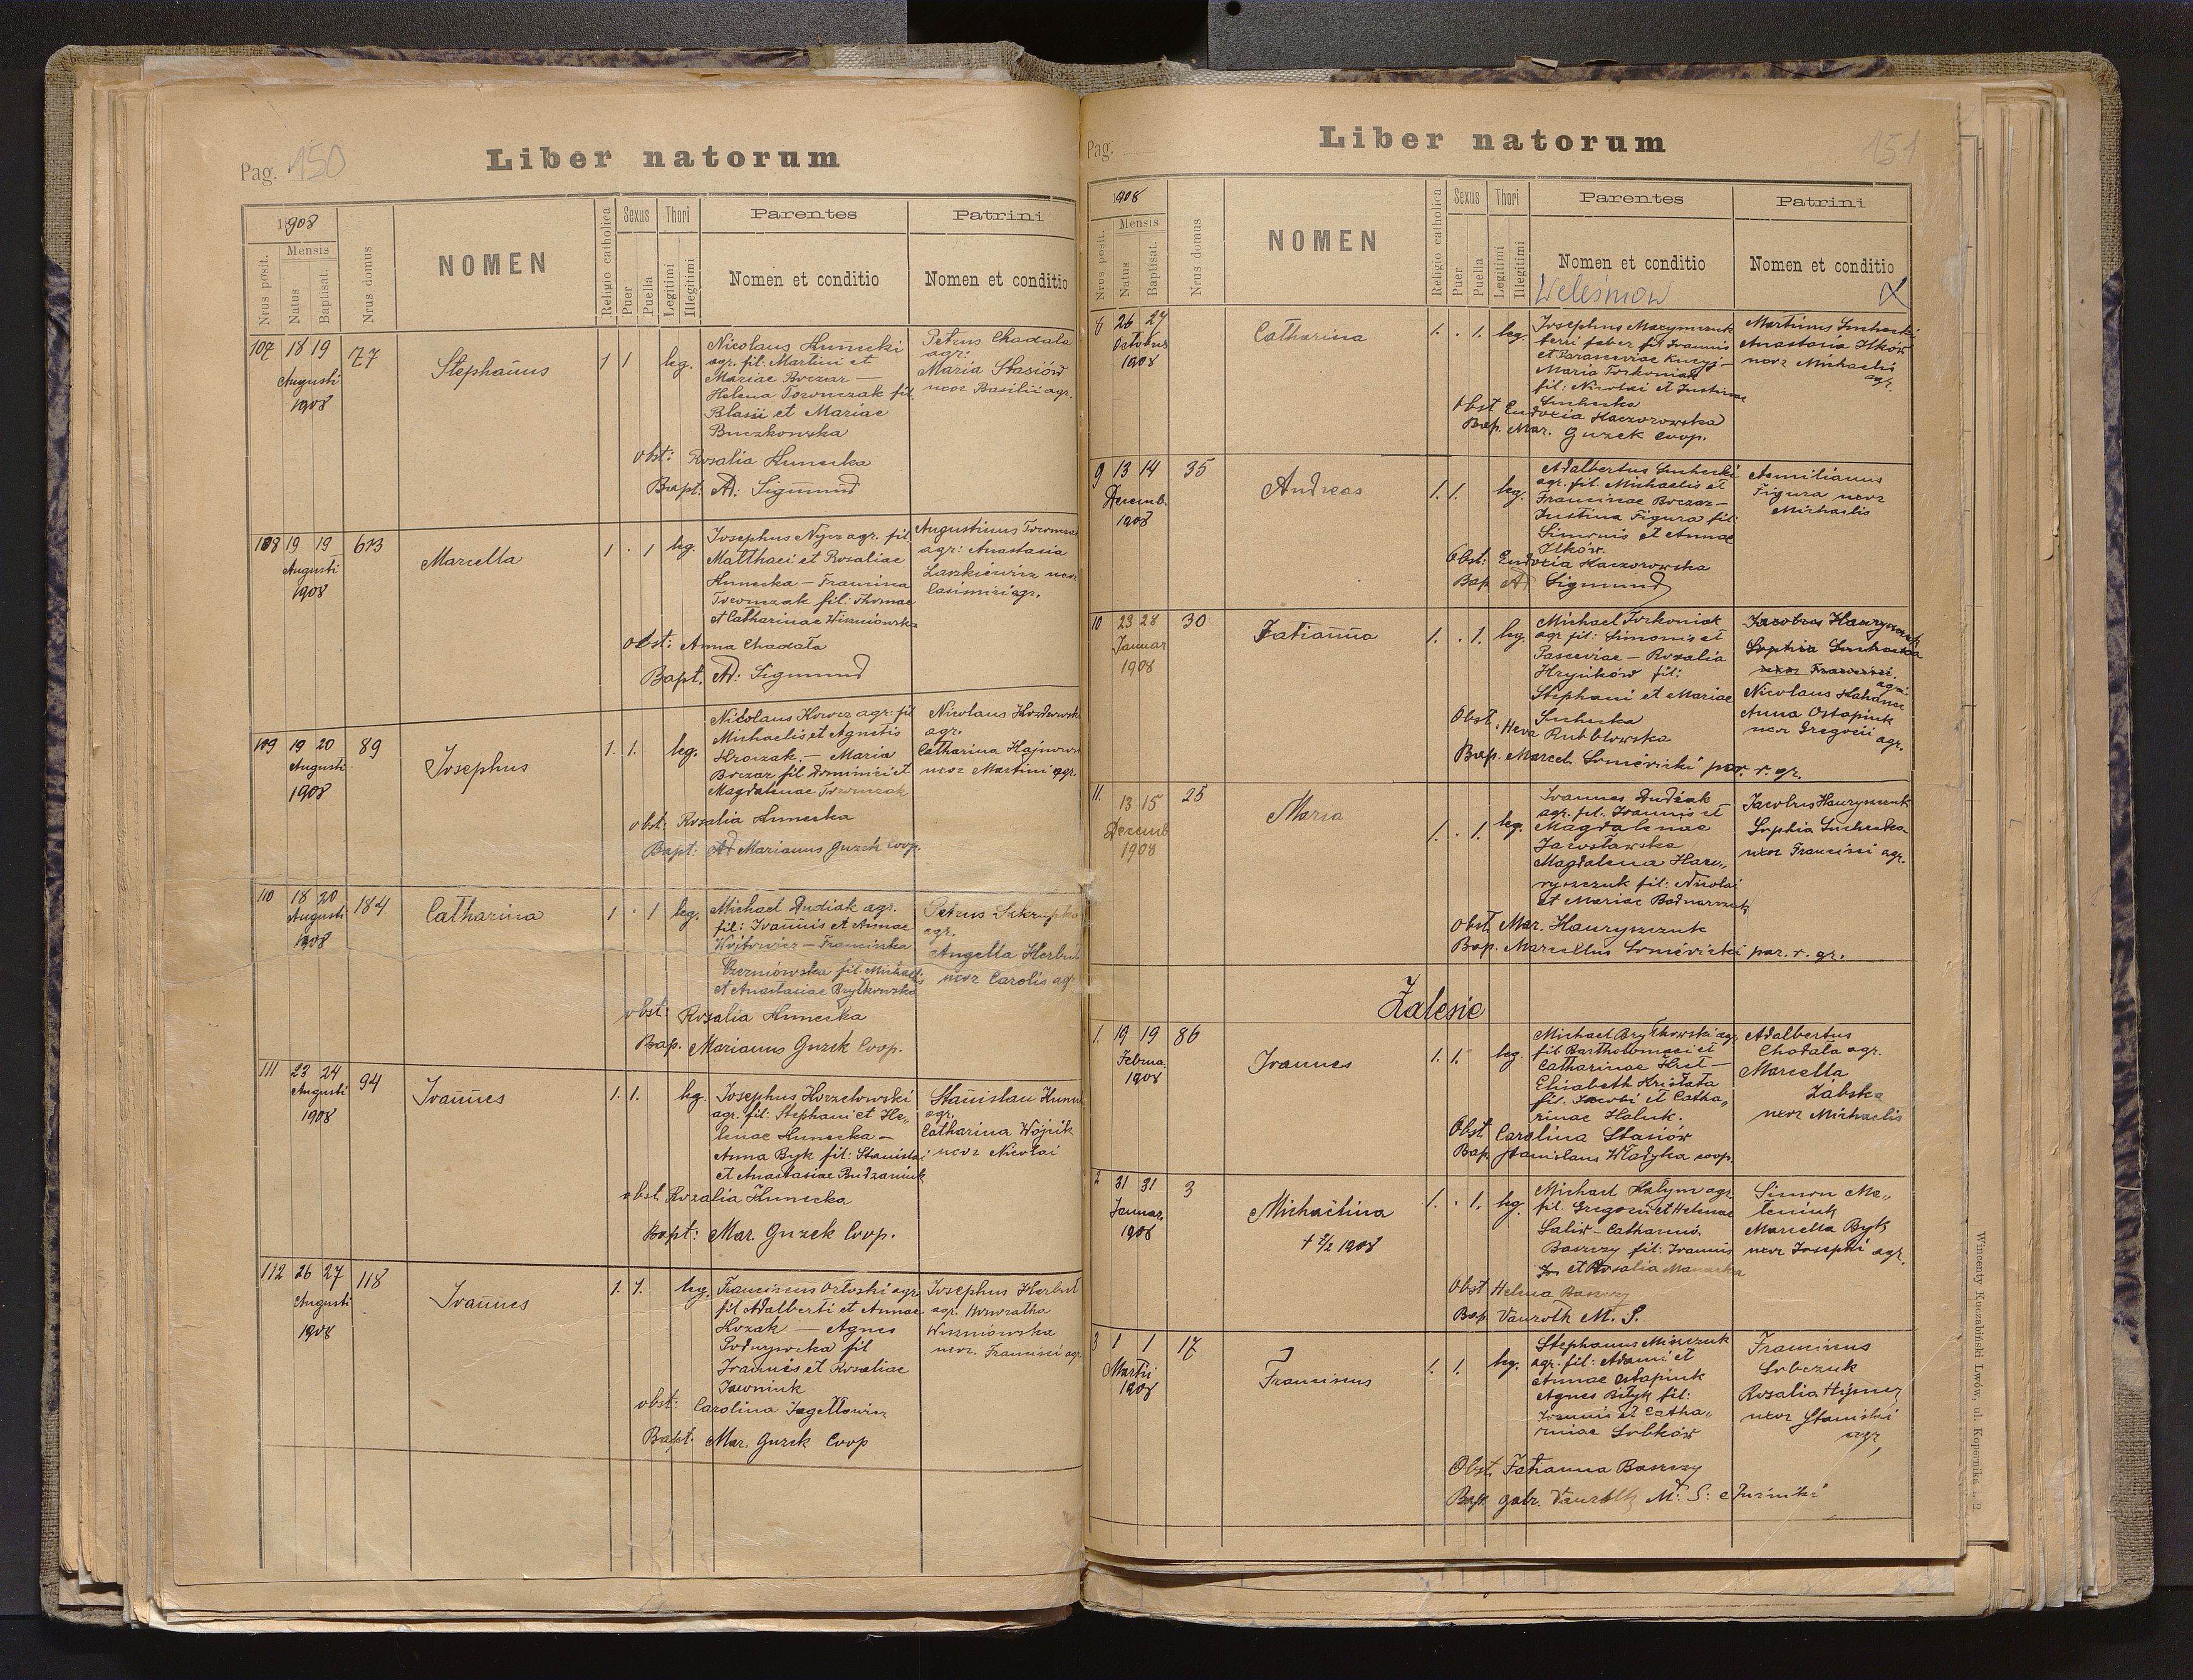 Pag. 150
Liber natorum
1908
Nrus posit.
Mensis
Natus
Baptisat.
Nrus domus
NOMEN
Religio catholica
Sexus
Puer
Puella
Thori
Legitimi
Illegitimi
Parentes
Nomen et conditio
Patrini
Nomen et conditio
107 18 19 77
Augusti
1908
Stephanus
1 1 leg.
Nicolaus Kunecki
agr. fil. Martini et
Mariae Boczar —
Helena Towniczak fil.
Blasii et Mariae
Buczkowska
Petrus Chadala
agr.
Maria Stasiów
uxor Basilii agr.
obst: Rosalia Kunecka
Bapt: Ad: Sigmund
108 19 19 613
Augusti
1908
Marcella
1 . 1 leg.
Josephus Nycz agr. fil.
Matthaei et Rosaliae
Kunecka — Francisca
fil: Thomae
et Catharinae Wiszniowska
Augustinus
agr: Anastasia
Laszkiewicz uxor
Casimiri agr.
obst: Anna Chadala
Bapt. Ad: Sigmund
109 19 20 89
Augusti
1908
Josephus
1 1. leg.
Nicolaus agr. fil
Michaelis et Agnetis
— Maria
Boczar fil Dominici et
Magdalenae
Nicolaus
agr.
Catharina
uxor Martini agr.
obst: Rosalia Kunecka
Bapt: Ad Marianus Guzek Coop.
110 18 20 184
Augusti
1908
Catharina
1 . 1 leg.
Michael Dudiak agr.
fil: Joannis et Annae
Wojtowicz — Franciszka
Czerniowska fil. Michaelis
et Anastasiae Brytkowska
Petrus
agr.
Angella Herbut
uxor Carolis agr
obst: Rosalia Kunecka
Bap. Marianus Guzek Coop.
111 23 24 94
Augusti
1908
Joannes
1. 1. leg.
Josephus Horzelowski
agr. fil: Stephani et He„
lenae Kunecka —
Anna Byk fil: Stanislai
et Anastasiae Budzaniuk
Stanislau
agr.
Catharina Wojcik
uxor Nicolai
obst Rozalia Kunecka
Bapt: Mar. Guzek Coop.
112 26 27 118
Augusti
1908
Joannes
1. 1. leg.
Franciscus Orłoski agr
fil Adalberti et Annae
Kozak — Agnes
fil
Joannis et Rosaliae
Josephus Herbut
agr.
Wiszniowska
uxor. Francisci agr
obst: Carolina Jagełłowicz
Bapt. Mar. Guzek Coop
Pag. 151
Liber natorum
1908
Nrus posit.
Mensis
Natus
Baptisat.
Nrus domus
NOMEN
Religio catholica
Sexus
Puer
Puella
Thori
Legitimi
Illegitimi
Parentes
Nomen et conditio
Patrini
Nomen et conditio
Weleśniow
8 26 27
Octobris
1908
Catharina
1. . 1. leg.
Josephus Maxymczuk
ferri faber fil Joannis
et Parasceviae
Maria Torkoniak
fil: Nicolai et Justinae
Suchecka
Martinus Suchecki
Anastasia Ilków
uxor Michaelis
agr.
Obst Eudoxia Haczorowska
Bap. Mar. Guzek Coop.
9 13 14 35
Decemb.
1908
Andreas
1. 1. leg.
Adalbertus Suchecki
agr. fil. Michaelis et
Franciscae Boczar —
Justina Figura fil:
Simonis et Annae
Ilków.
Aemilianus
Figura uxor
Michaelis
Obst: Eudoxia Haczorowska
Bap Ad Sigmund
10 23 28 30
Januar
1908
Tatianna
1. . 1. leg.
Michael Torkoniak
agr fil: Simonis et
— Rozalia
Hryńków fil:
Stephani et Mariae
Suchecka
Jacobus Hawryszczuk
Sophia Suchecka
uxor Francisci
agr.
Nicolaus
Anna Ostapiuk
uxor Gregorii agr.
Obst: Heva
Bap. Marcel. par. r. gr.
11. 13 15 25
Decemb
1908
Maria
1. . 1. leg.
Joannes Dudiak
agr. fil. Joannis et
Magdalenae
Jarosławska
Magdalena Haw„
ryszczuk fil: Nicolai
et Mariae Bodnarczuk
Jacobus Hawryszczuk
Sophia Suchecka
uxor Francisci agr.
Obst. Mar. Hawryszczuk
Bap. Marcellus par. r. gr.
Zalesie
1. 19 19 86
Februa.
1908
Joannes
1. 1. leg.
Michael Brytkowski agr,
fil Bartholomaei et
Catharinae —
Elisabeth
fil. Jacobi et Catha„
rinae Haluk.
Adalbertus
Chodala agr.
Marcella
Zabska
uxor Michaelis
Obst. Carolina Stasiów
Bap. Stanislaus Władyka coop.
2 31 31 3
Januar.
1908
Michaëlina
+ 2/2 1908
1. . 1. leg.
Michael Hałym agr
fil. Gregorii et Helenae
Saliw — Catharina
Baszczy fil: Joannis
et Rosalia
Simon Me„
leniuk
Marcella Byk
uxor Josephi agr.
Obst Helena Baszczy
Bap. Vauroth M. S.
3 1 1 17
Martii
1908
Franciscus
1. 1. leg.
Stephanus
agr. fil: Adami et
Annae Ostapiuk
Agnes Biłyk fil:
Joannis et Catha„
rinae Sobków
Franciscus
Sobczuk
Rosalia
uxor Stanislai
agr,
Obst. Tatianna Baszczy
Bap. Gabr. Vauroth M: S:
Wincenty Kuczabiński Lwów, ul. Kopernika 1. 2.